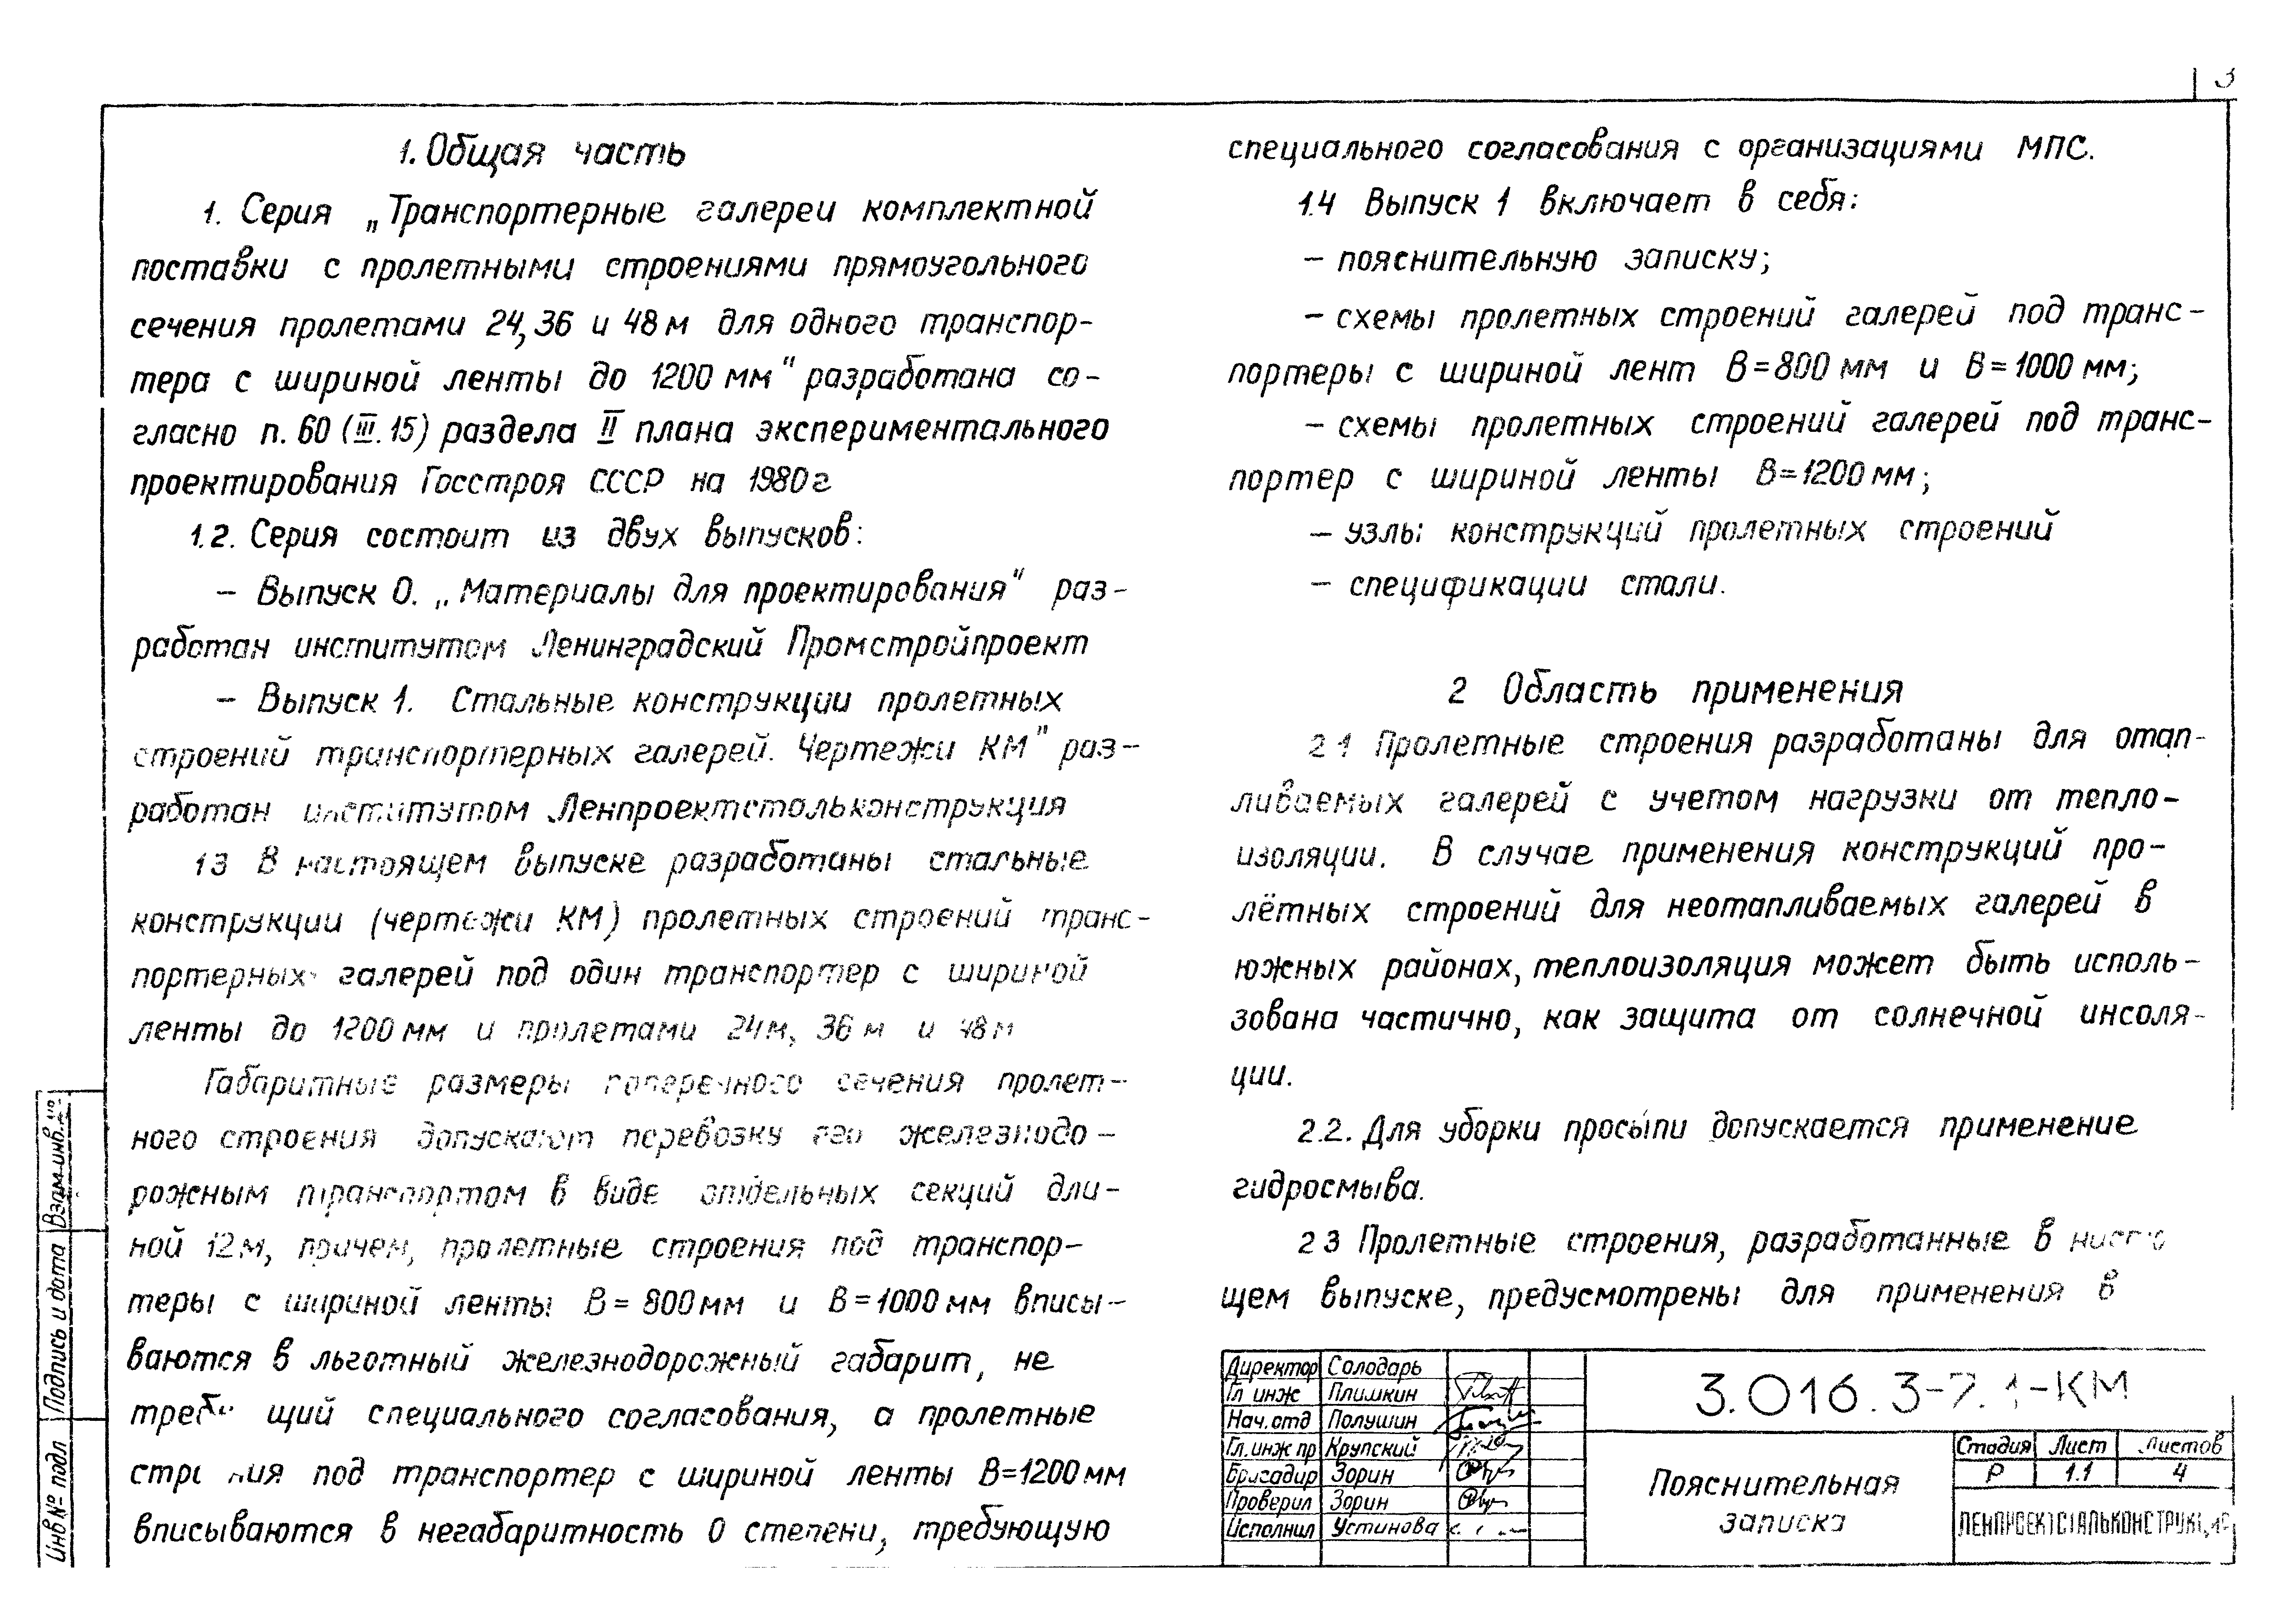 3
1. Общая часть
1. Серия „Транспортерные галереи комплектной
поставки с пролетными строениями прямоугольного
сечения пролетами 24, 36 и 48 м для одного транспор-
тера с шириной ленты до 1200 мм" разработана со-
гласно п. 60 (III. 15) раздела II плана экспериментального
проектирования Госстроя СССР на 1980 г
1.2. Серия состоит из двух выпусков:
- Выпуск 0. „Материалы для проектирования" раз-
работан институтом Ленинградский Промстройпроект
- Выпуск 1. Стальные конструкции пролетных
строений транспортерных галерей. Чертежи КМ" раз-
работан институтом Ленпроектстальконструкция
1 3 В настоящем выпуске разработаны стальные
конструкции (чертежи КМ) пролетных строений транс-
портерных галерей под один транспортер с шириной
ленты до 1200 мм и пролетами 24 м, 36 м и 48 м
Габаритные размеры поперечного сечения пролет-
ного строения допускают перевозку его железнодо-
рожным транспортом в виде отдельных секций дли-
ной 12 м, причем, пролетные строения под транспор-
теры с шириной ленты В = 800 мм и В = 1000 мм вписы-
ваются в льготный железнодорожный габарит, не
щий специального согласования, а пролетные
под транспортер с шириной ленты В=1200 мм
вписываются в негабаритность 0 степени, требующую
специального согласования с организациями МПС.
1.4 Выпуск 1 включает в себя:
- пояснительную записку;
- схемы пролетных строений галерей под транс-
портеры с шириной лент В = 800 мм и В = 1000 мм;
- схемы пролетных строений галерей под транс-
портер с шириной ленты В = 1200 мм;
- узлы конструкций пролетных строений
- спецификации стали.
2 Область применения
2 1 Пролетные строения разработаны для отап-
ливаемых галерей с учетом нагрузки от тепло-
изоляции. В случае применения конструкций про-
лётных строений для неотапливаемых галерей в
южных районах, теплоизоляция может быть исполь-
зована частично, как защита от солнечной инсоля-
ции.
2.2. Для уборки просыпи допускается применение
гидросмыва.
2 3 Пролетные строения, разработанные в
щем выпуске, предусмотрены для применения в
Директор Солодарь
Гл инж Плишкин
Нач. отд Полушин
Гл. инж пр Крупский
Бригадир Зорин
Проверил Зорин
Исполнил Устинова
3.016.3-7.1-КМ
Пояснительная
записка
Стадия Лист Листов
Р 1.1 4
Взам инв. №
Подпись и дата
Инв № подл